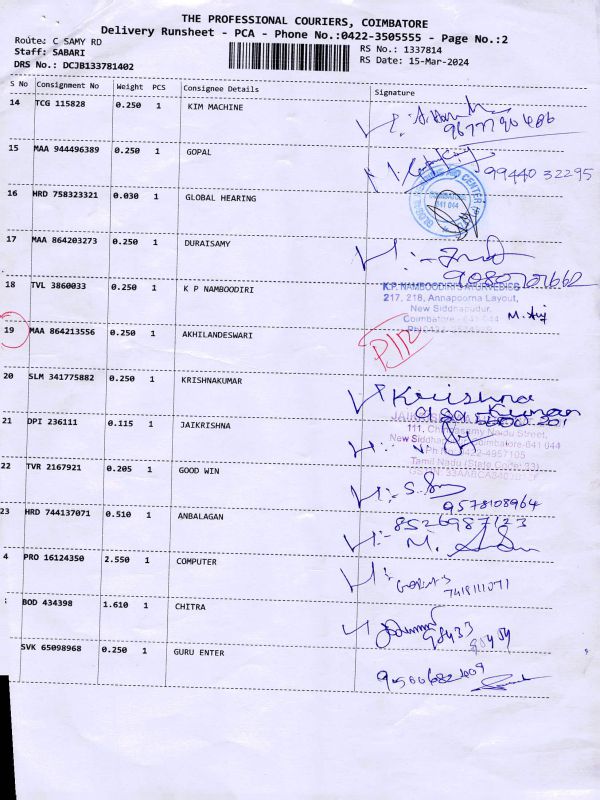 THE PROFESSIONAL COURIERS, COIMBATORE
Delivery Runsheet - PCA - Phone No.:0422-3505555 - Page No.:2
Route: C SAMY RD
Staff: SABARI
DRS No.: DCJB133781402
RS No.: 1337814
RS Date: 15-Mar-2024
S No Consignment No Weight PCS Consignee Details Signature
14 TCG 115828 0.250 1 KIM MACHINE
15 MAA 944496389 0.250 1 GOPAL
99440 32295
16 HRD 758323321 0.030 1 GLOBAL HEARING
COIMBATORE
641 044
17 MAA 864203273 0.250 1 DURAISAMY
18 TVL 3860033 0.250 1 K P NAMBOODIRI
K.P. NAMBOODIRI'S AYURVEDICS
217, 218, Annapoorna Layout,
New Siddhapudur,
Coimbatore - 641 044
19 MAA 864213556 0.250 1 AKHILANDESWARI
20 SLM 341775882 0.250 1 KRISHNAKUMAR
Krishna
Kumar
21 DPI 236111 0.115 1 JAIKRISHNA
22 TVR 2167921 0.205 1 GOOD WIN
9578108964
23 HRD 744137071 0.510 1 ANBALAGAN
8526987123
4 PRO 16124350 2.550 1 COMPUTER
7418111071
BOD 434398 1.610 1 CHITRA
SVK 65098968 0.250 1 GURU ENTER